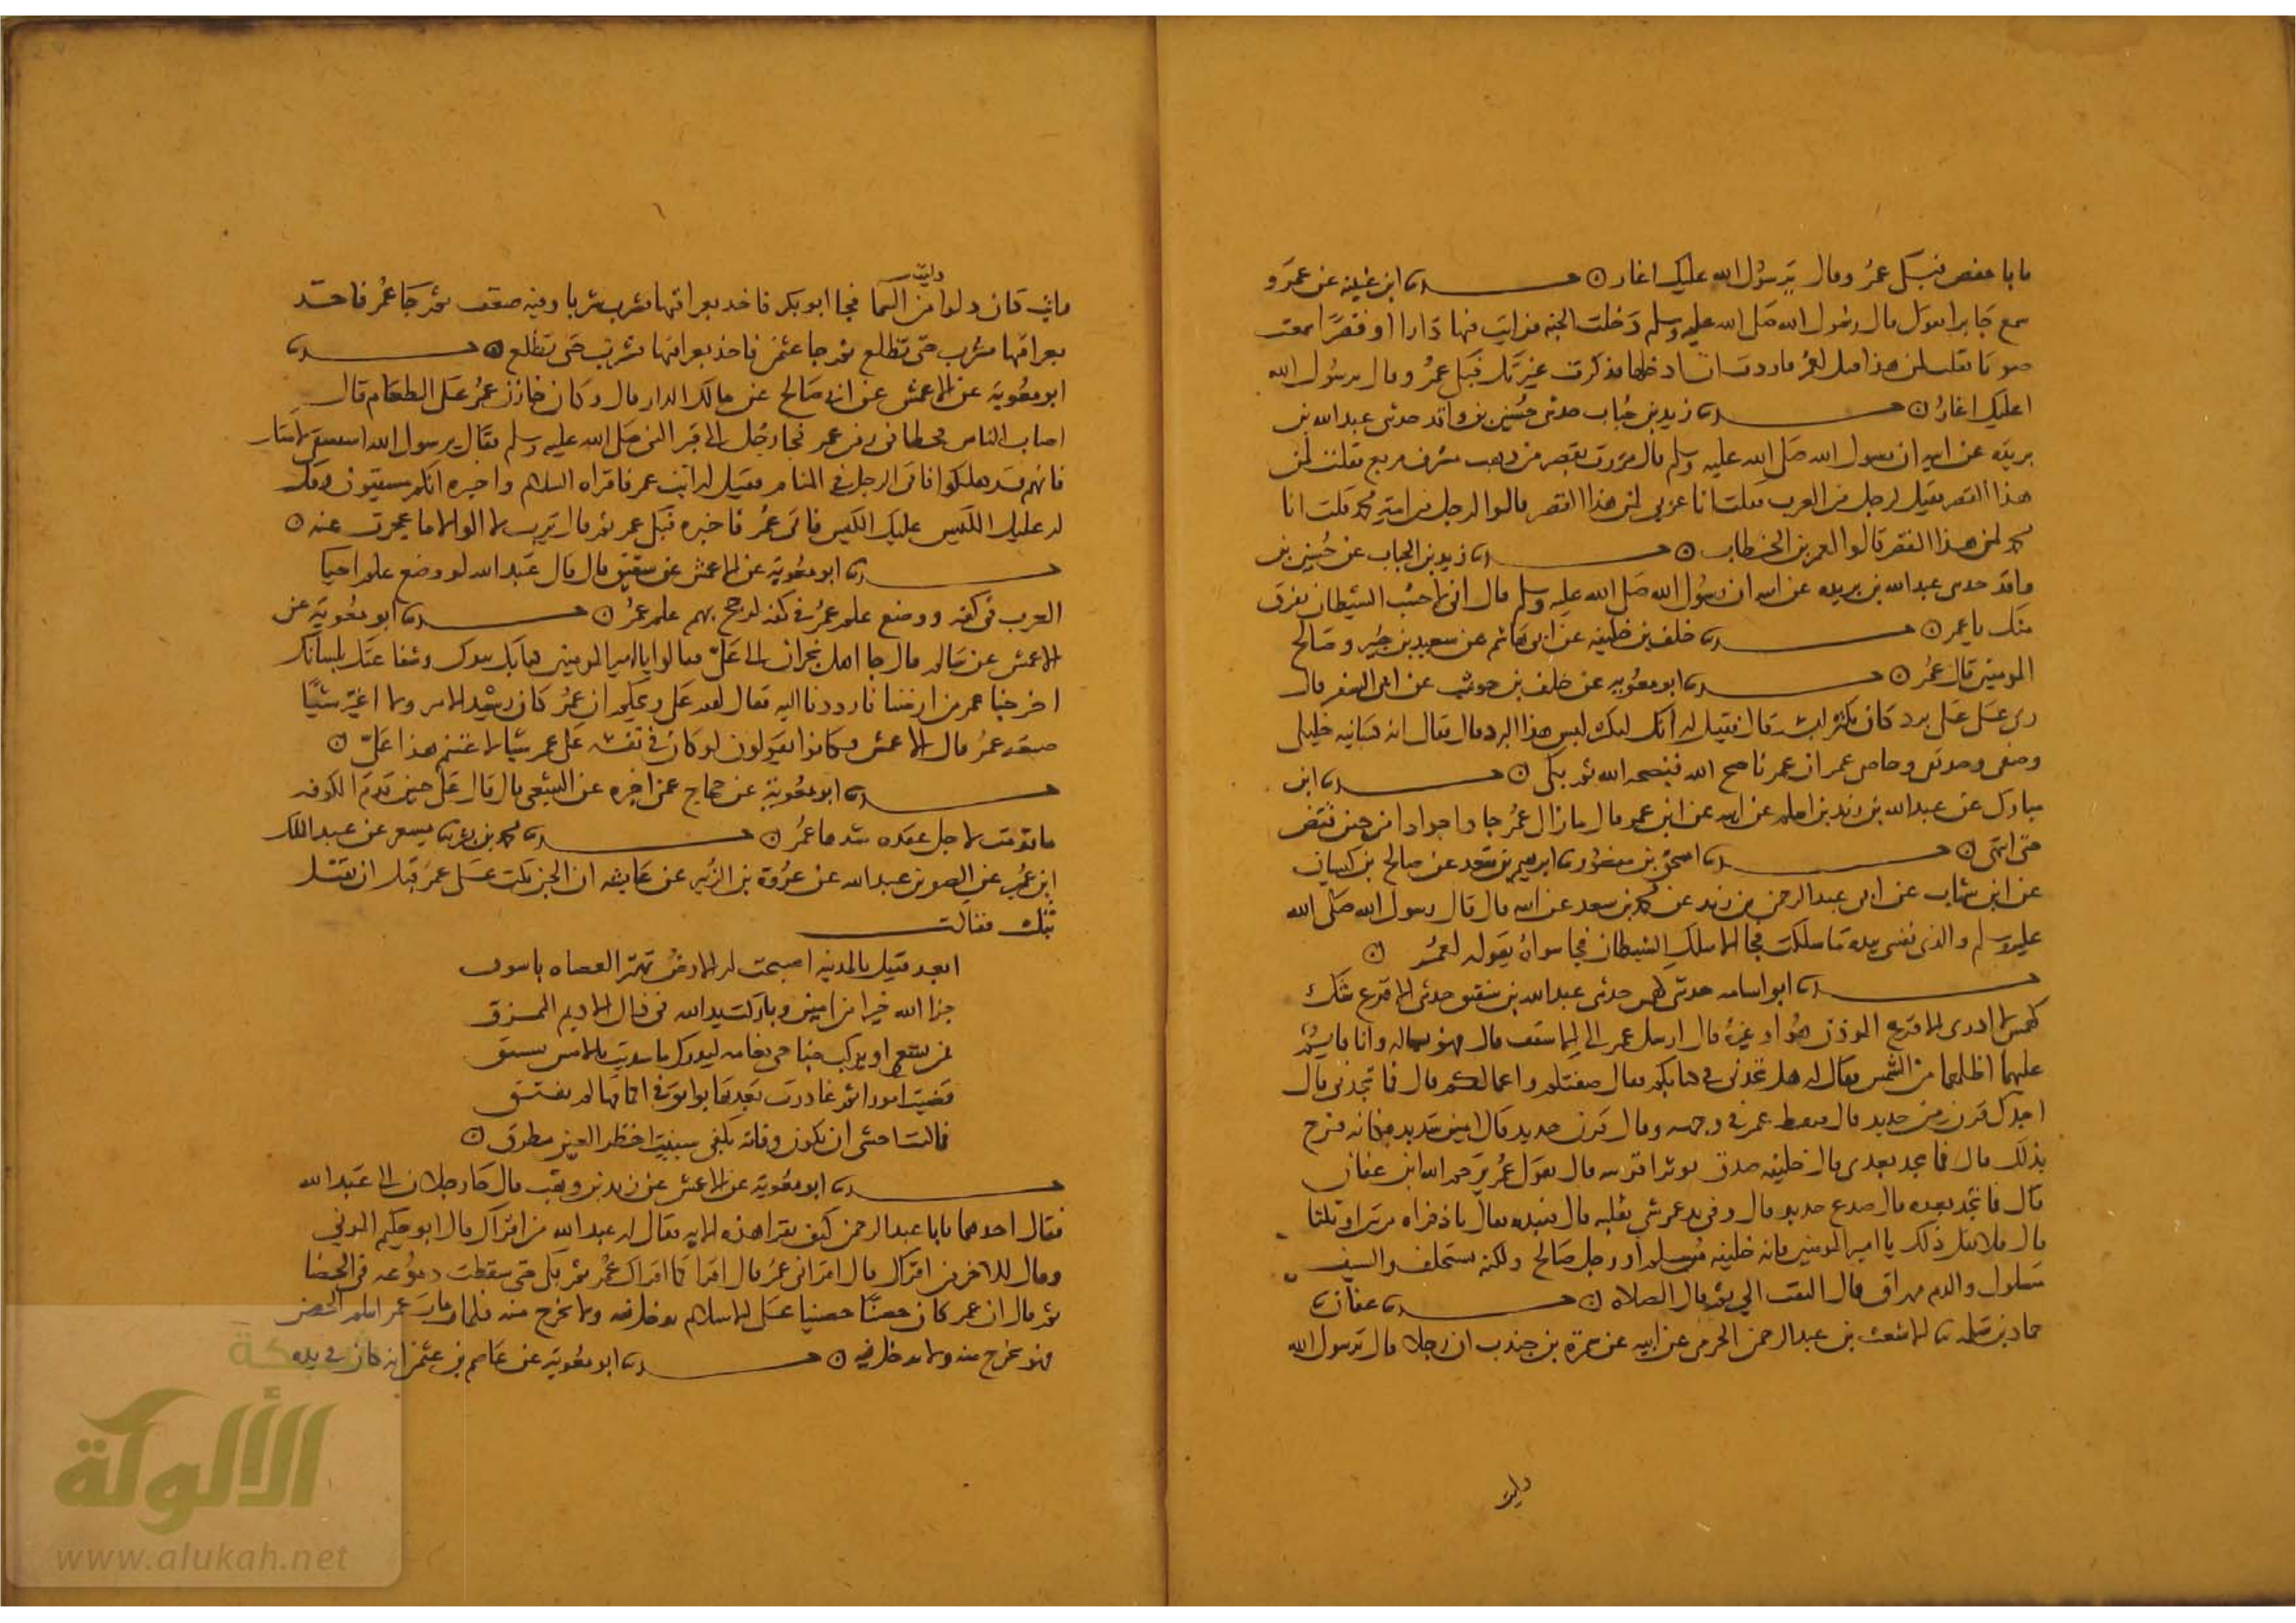 يابا حفص فبكى عمر وقال يرسول الله عليك اغار ن ابن عيينه عن عمرو
سمع جابرا يقول قال رسول الله صلى الله عليه وسلم دخلت الجنه فرايت فيها دارا او قصرا فسمعت
صوتا فقلت لمن هذا قيل لعمر فاردت ان ادخلها فذكرت غيرتك فبكى عمر وقال يرسول الله
اعليك اغار ن زيد بن حباب حدثني حسين بن واقد حدثني عبدالله بن
بريده عن ابيه ان رسول الله صلى الله عليه وسلم قال مررت بقصر من ذهب مشرف مربع فقلت لمن
هذا القصر فقيل لرجل من العرب فقلت انا عربي لمن هذا القصر قالوا لرجل من امة محمد قلت انا
محمد لمن هذا القصر قالوا لعمر بن الخطاب ن زيد بن الحباب عن حسين بن
واقد حدثني عبدالله بن بريده عن ابيه ان رسول الله صلى الله عليه وسلم قال اني لاحسب الشيطان يفرق
منك يا عمر ن خلف بن خليفه عن ابي هاشم عن سعيد بن جبير وصالح
المومنين قال عمر ن ابو معويه عن خلف بن حوشب عن ابي السفر قال
رى على علي برد كان يكثر لبسه قال فقيل له انك لتكثر لبس هذا البرد قال فقال انه كسانيه خليلي
وصفيي وصديقي وخاصي عمر ان عمر ناصح الله فنصحه الله ثم بكى ن ابن
مبارك عن عبدالله بن زيد بن اسلم عن ابيه عن ابن عمر قال ما زال عمر جادا جوادا من حين قبض
حتى انتهى ن اسحق بن منصور ابرهيم بن سعد عن صالح بن كيسان
عن ابن شهاب عن عبدالرحمن بن زيد عن محمد بن سعد عن ابيه قال قال رسول الله صلى الله
عليه وسلم والذي نفسي بيده ما سلكت فجا الا سلك الشيطان فجا سواه يقوله لعمر ن
ابو اسامه حدثني كهمس حدثني عبدالله بن شقيق حدثني الاقرع شك
كهمس لا ادري الاقرع الموذن هو او غيره قال ارسل عمر الى الاسقف قال فهو يساله وانا قايم
عليهما اظلهما من الشمس فقال له هل تجدني في كتابكم فقال صفتكم واعمالكم قال فما تجدني قال
اجدك قرن من حديد قال فنقط عمر في وجهه وقال قرن حديد قال امين شديد فكانه فرح
بذلك قال فما تجد بعدي قال خليفه صدق يوثر اقربيه قال يقول عمر يرحم الله ابن عفان
قال فما تجد بعده قال صدع حديد قال وفي يد عمر شي يقلبه قال فنبذه فقال يا ذفراه مرتين او ثلثا
قال فلا تقل ذلك يا امير المومنين فانه خليفه مسلم ورجل صالح ولكنه يستخلف والسيف
مسلول والدم مهراق قال ثم التفت الي ثم قال الصلاه ن عفان
حماد بن سلمه الاشعث بن عبدالرحمن الجرمي عن ابيه عن سمرة بن جندب ان رجلا قال يرسول الله
رايت
رايت كان دلوا دليت من السما فجا ابو بكر فاخذ بعراقيها فشرب شربا وفيه ضعف ثم جا عمر فاخذ
بعراقيها فشرب حتى تضلع ثم جا عثمن فاخذ بعراقيها فشرب حتى تضلع ن
ابو معويه عن الاعمش عن ابي صالح عن مالك الدار قال وكان خازن عمر على الطعام قال
اصاب الناس قحط في زمن عمر فجا رجل الى قبر النبي صلى الله عليه وسلم فقال يرسول الله استسق لامتك
فانهم قد هلكوا فاتى الرجل في المنام فقيل له ايت عمر فاقراه السلام واخبره انكم مسقيون وقل
له عليك الكيس عليك الكيس فاتى عمر فاخبره فبكى عمر ثم قال يرب لا الو الا ما عجزت عنه ن
ابو معويه عن الاعمش عن شقيق قال قال عبدالله لو وضع علم احيا
العرب في كفه ووضع علم عمر في كفه لرجح بهم علم عمر ن ابو معويه عن
الاعمش عن سالم قال جا اهل نجران الى علي فقالوا يا امير المومنين كتابك بيدك وشفاعتك بلسانك
اخرجنا عمر من ارضنا فارددنا اليها فقال لهم علي ويحكم ان عمر كان رشيد الامر ولا اغير شيا
صنعه عمر قال الاعمش فكانوا يقولون لو كان في نفسه على عمر شيا لاغتنم هذا علي ن
ابو معويه عن حجاج عمن اخبره عن الشعبي قال قال علي حين قدم الكوفه
ما قدمت لاحل عقده شدها عمر ن محمد بن بشر مسعر عن عبدالملك
ابن عمير عن الصقر بن عبدالله عن عروة بن الزبير عن عايشه ان الجن بكت على عمر قبل ان يقتل
بثلث فقالت
ابعد قتيل بالمدينه اصبحت له الارض تهتز العضاه باسوق
جزا الله خيرا من امير وباركت يد الله في ذاك الاديم الممزق
فمن يسع او يركب جناحي نعامه ليدرك ما سديت بالامس يسبق
قضيت امورا ثم غادرت بعدها بوايق في اكمامها لم تفتق
فما كنت اخشى ان تكون وفاته بكفي سبنتى اخضر العين مطرق ن
ابو معويه عن الاعمش عن زيد بن وهب قال جا رجلان الى عبدالله
فقال احدهما يابا عبدالرحمن كيف تقرا هذه الايه فقال له عبدالله من اقراك قال ابو حكيم المزني
وقال للاخر من اقراك قال اقراني عمر قال اقرا كما اقراك عمر ثم بكى حتى سقطت دموعه في الحصا
ثم قال ان عمر كان حصنا حصينا على الاسلام يدخل فيه ولا يخرج منه فلما مات عمر انثلم الحصن
فهو يخرج منه ولا يدخل فيه ن ابو معويه عن عاصم بن عثمن انه كان في يده
شبكة
الألوكة
www.alukah.net